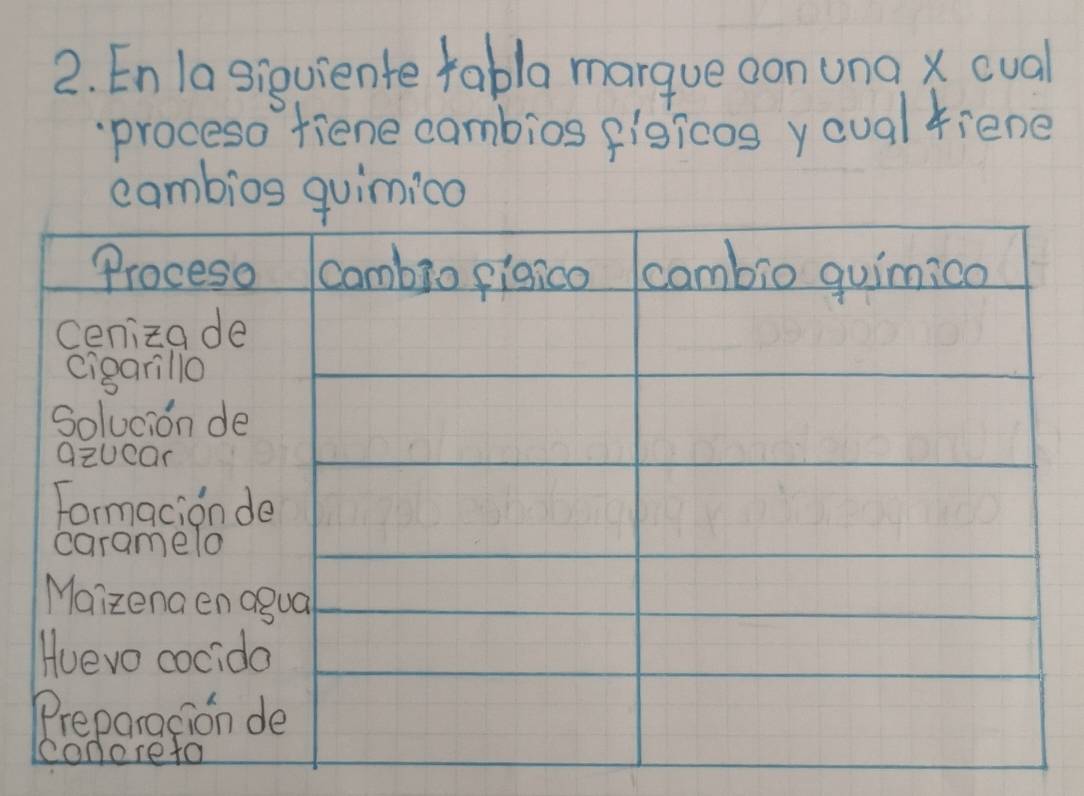 2. En la siguiente tabla marque con una x cual
proceso tiene cambios físicos y cual tiene
cambios químico
Proceso cambio físico cambio químico
ceniza de
cigarillo
Solución de
azucar
Formación de
caramelo
Maizena en agua
Huevo cocido
Preparación de
concreto